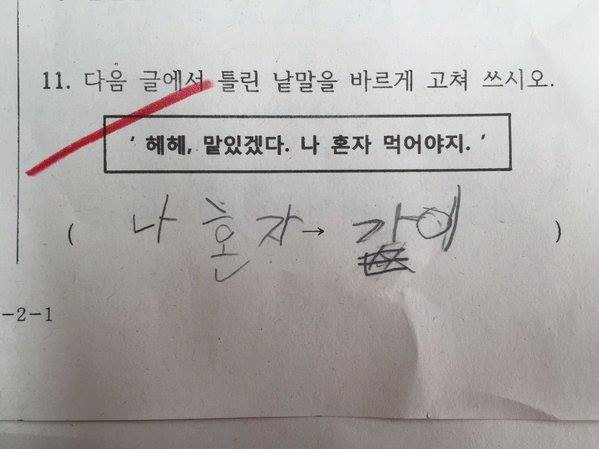 11. 다음 글에서 틀린 낱말을 바르게 고쳐 쓰시오.
‘ 헤헤, 맡있겠다. 나 혼자 먹어야지. ’
( 나 혼자→ )
-2-1